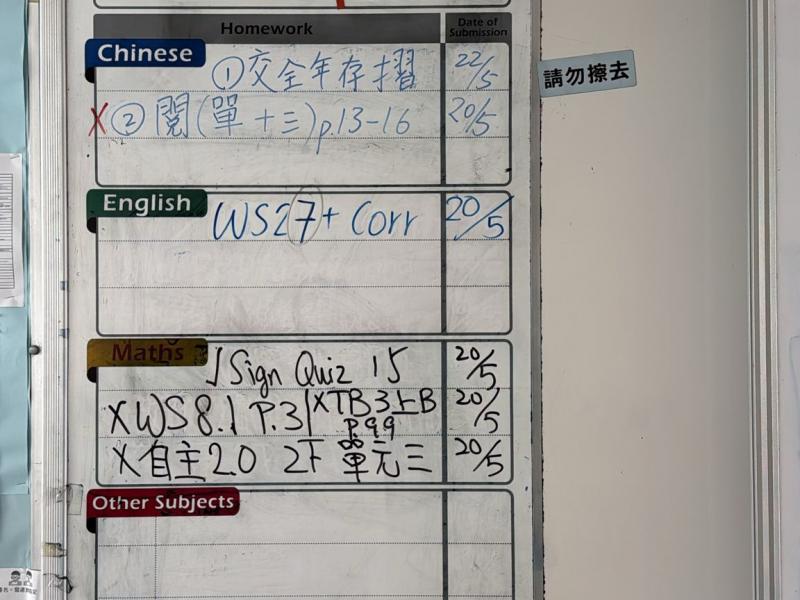 Homework Date of Submission
Chinese
①交全年存摺 22/5
X ② 閱(單十三)p.13-16 20/5
請勿擦去
English
WS27+ Corr 20/5
Maths
√Sign Quiz 15 20/5
XWS8.1 P.3 XTB3上B P.99 20/5
X自主2.0 2下 單元三 20/5
Other Subjects